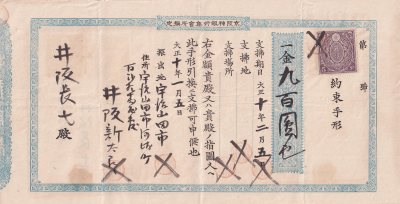 京阪神銀行集會所規定
第 號
約束手形
一金九百圓也
支拂期日 大正十年二月五日
支拂地
支拂場所
右金額貴殿又ハ貴殿ノ指圖人ヘ
此手形引換ニ支拂可申候也
大正十年一月五日
振出地 宇治山田市
住所 宇治山田市河崎町
井阪新太郎
井阪長七殿